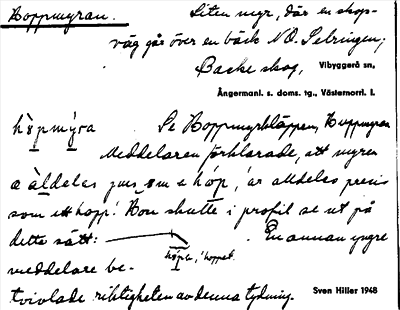 Hoppmyran. Liten myr, där en skog-
väg går över en bäck N.O. Selringen;
Backe skog, Vibyggerå sn,
Ångermanl. s. doms. tg., Västernorrl. l.
hòpmýra Se Hoppmyrkläppen, Hoppmyran
Meddelaren förklarade, att myren
a àldeles jus, som e hóp, 'är alldeles precis
som ett hopp'. Hon skulle i profil se ut på
detta sätt: En annan yngre
hópə, 'hoppet'.
meddelare be-
tvivlade riktigheten av denna tydning.
Sven Hiller 1948